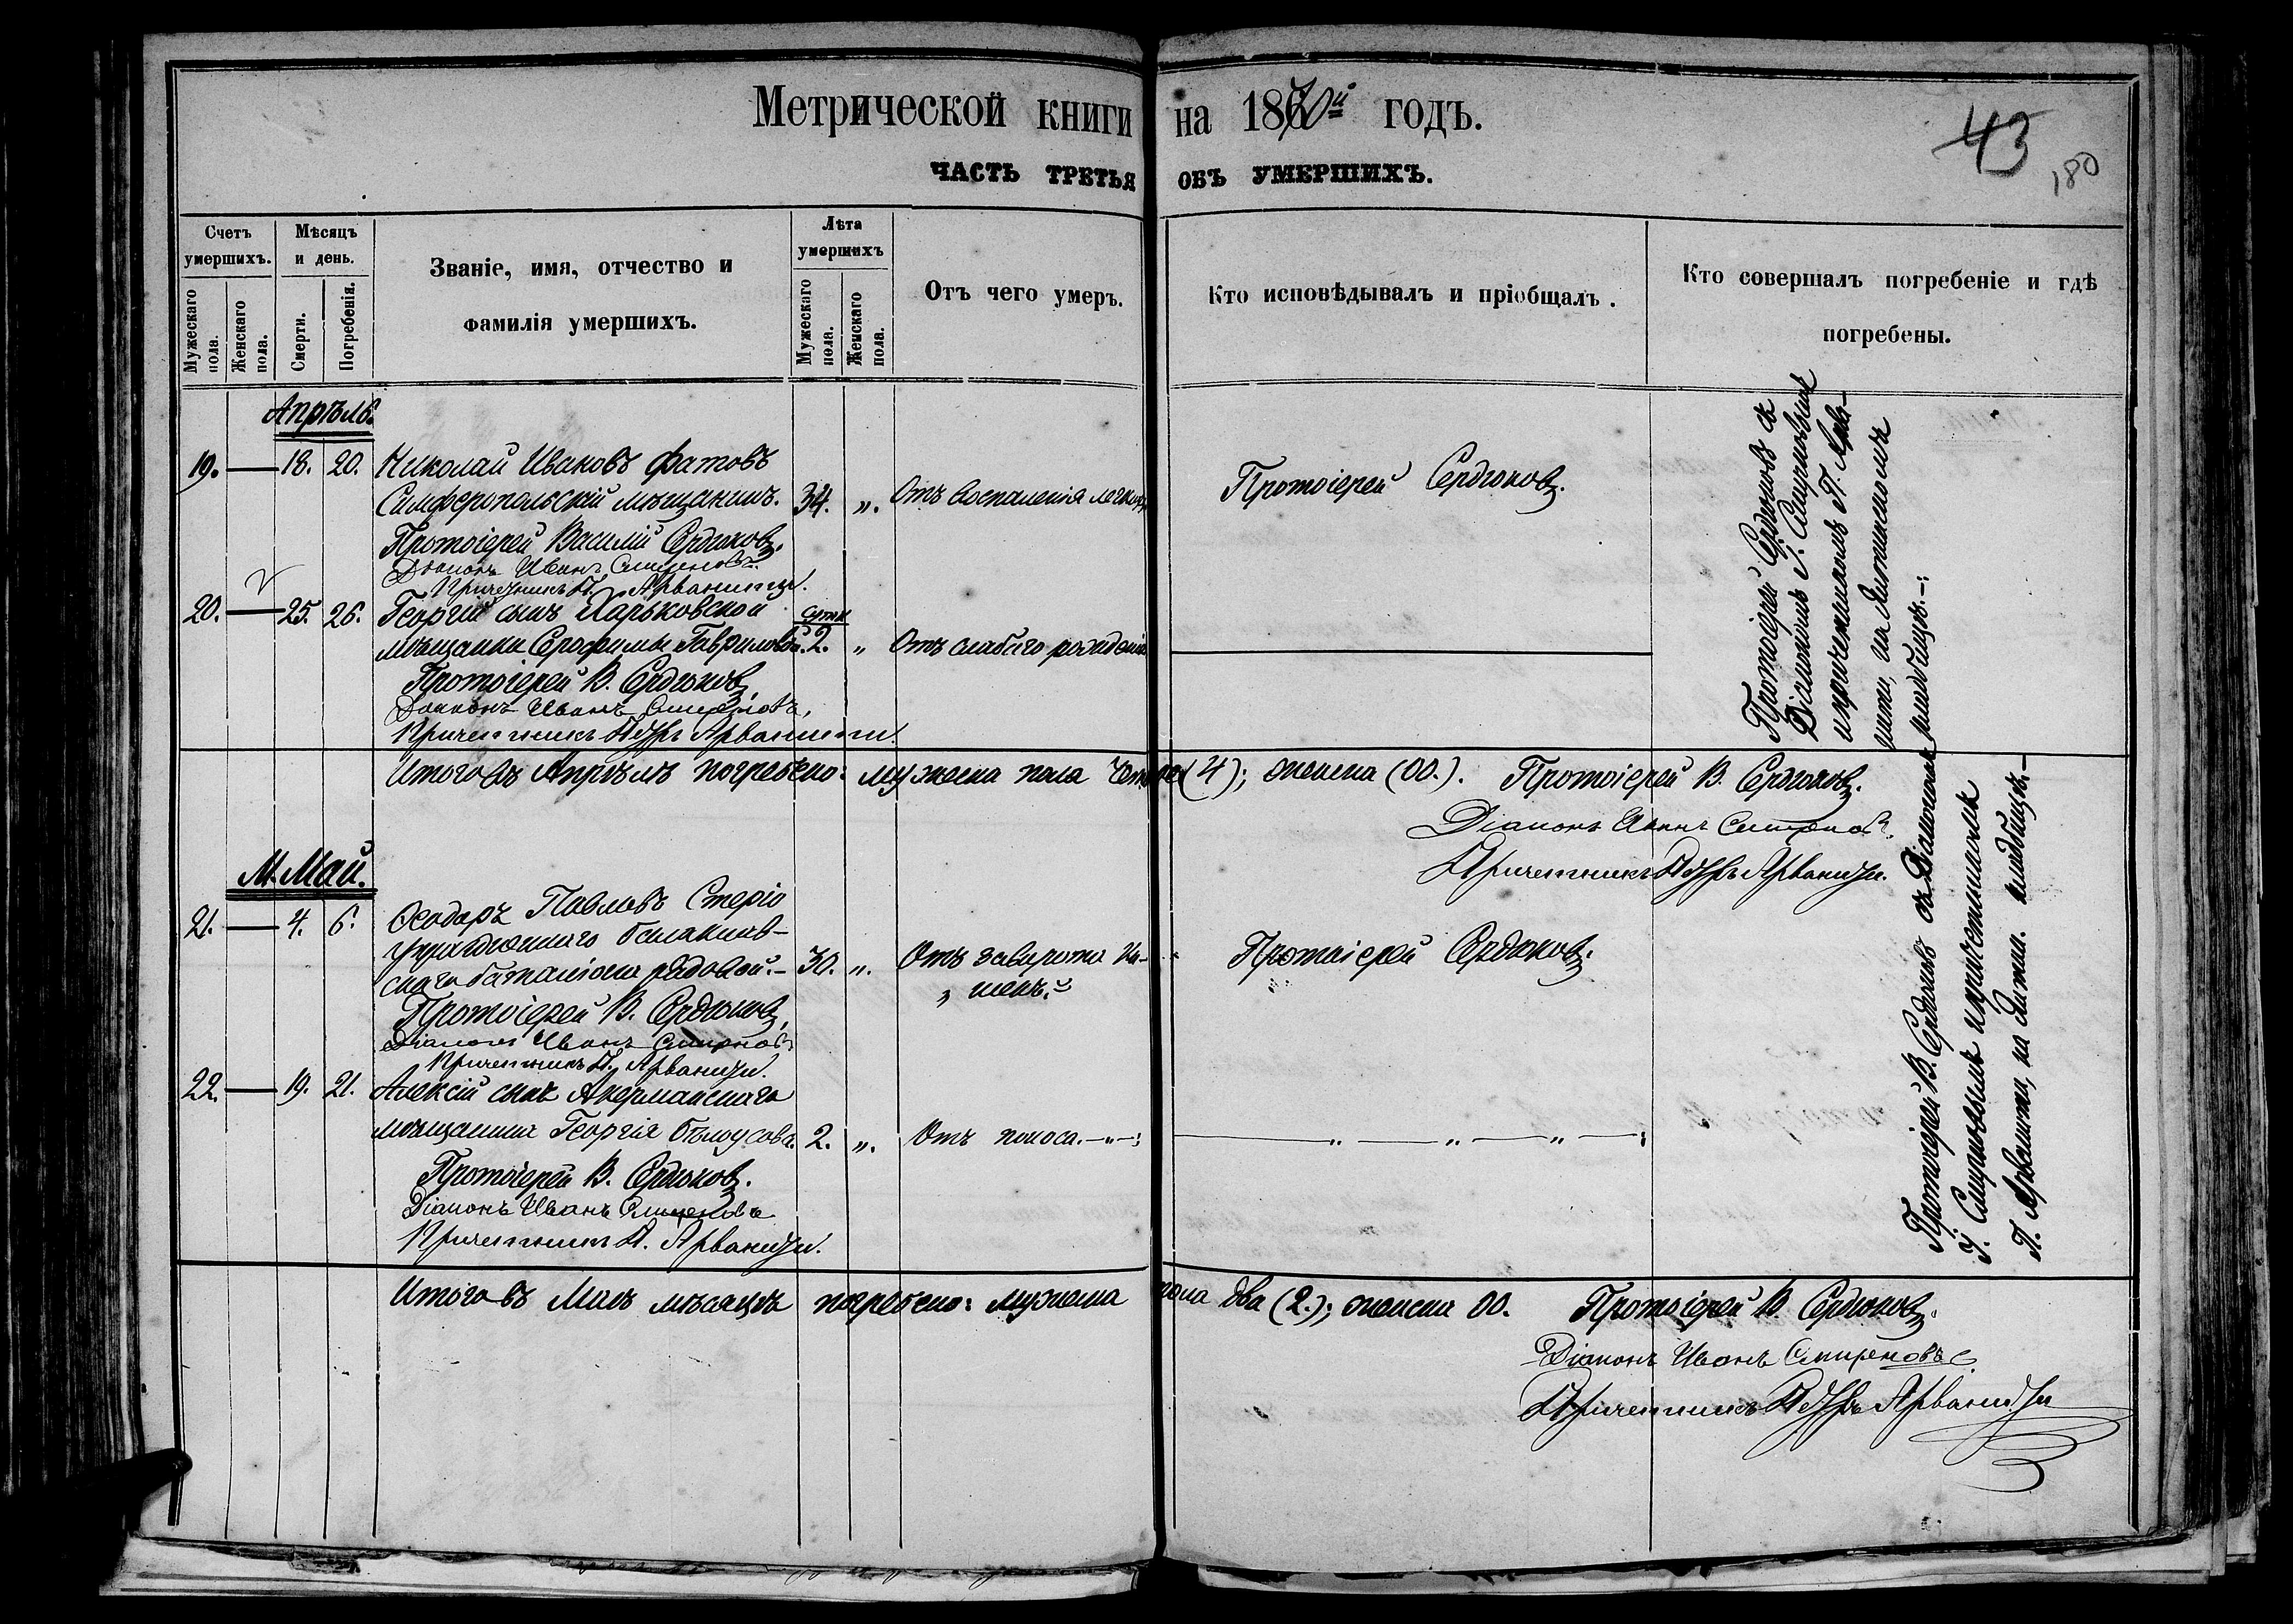 Метрической книги на 1870й годъ.
43
180
ЧАСТЬ ТРЕТЬЯ ОБЪ УМЕРШИХЪ.
Счетъ умершихъ.
Мѣсяцъ и день.
Званіе, имя, отчество и фамилія умершихъ.
Лѣта умершихъ
Отъ чего умеръ.
Кто исповѣдывалъ и пріобщалъ.
Кто совершалъ погребеніе и гдѣ погребены.
Мужескаго пола.
Женскаго пола.
Смерти.
Погребенія.
Мужескаго пола.
Женскаго пола.
Апрѣль.
19. — 18. 20. Николай Ивановъ Фатовъ
Симферопольскій мѣщанинъ. 34. „. Отъ воспаленія легкихъ
Протоіерей Сердюковъ.
Протоіерей Василій Сердюковъ.
Діаконъ Иванъ Смирновъ
Причетникъ П. Арванити.
20. — 25. 26. Георгій сынъ Харьковской сутк
мѣщанки Серафимы Гавриловой. 2. „ Отъ слабаго рожденія
Протоіерей В. Сердюковъ,
Діаконъ Иванъ Смирновъ,
Причетникъ Петръ Арванити.
Протоіерей Сердюковъ съ
Діакономъ І. Смирновымъ
и причетникомъ П. Арва-
нити, на Аитинскомъ
кладбищѣ.—
Итого въ Апрѣлѣ погребено: мужеска пола четыре (4); женска (00.). Протоіерей В. Сердюковъ.
Діаконъ Иванъ Смирновъ.
Причетникъ Петръ Арванити.
М. Май.
21. — 4. 6. Ѳеодоръ Павловъ Стеріо
упраздненнаго Балаклав-
скаго баталіона рядовой.— 30. „. Отъ заворота ки-
шекъ.
Протоіерей Сердюковъ.
Протоіерей В. Сердюковъ,
Діаконъ Иванъ Смирновъ
Причетникъ П. Арванити.
22. — 19. 21. Алексій сынъ Акерманскаго
мѣщанина Георгія Бѣлоусова. 2. „. Отъ поноса.—„—
Протоіерей В. Сердюковъ.
Діаконъ Иванъ Смирновъ
Причетникъ П. Арванити.
Протоіерей В. Сердюковъ съ Діакономъ
І. Смирновымъ и причетникомъ
П. Арванити, на кладбищѣ.—
Итого въ Маѣ мѣсяцѣ погребено: мужеска пола два (2.); женска 00. Протоіерей В. Сердюковъ.
Діаконъ Иванъ Смирновъ.
Причетникъ Петръ Арванити